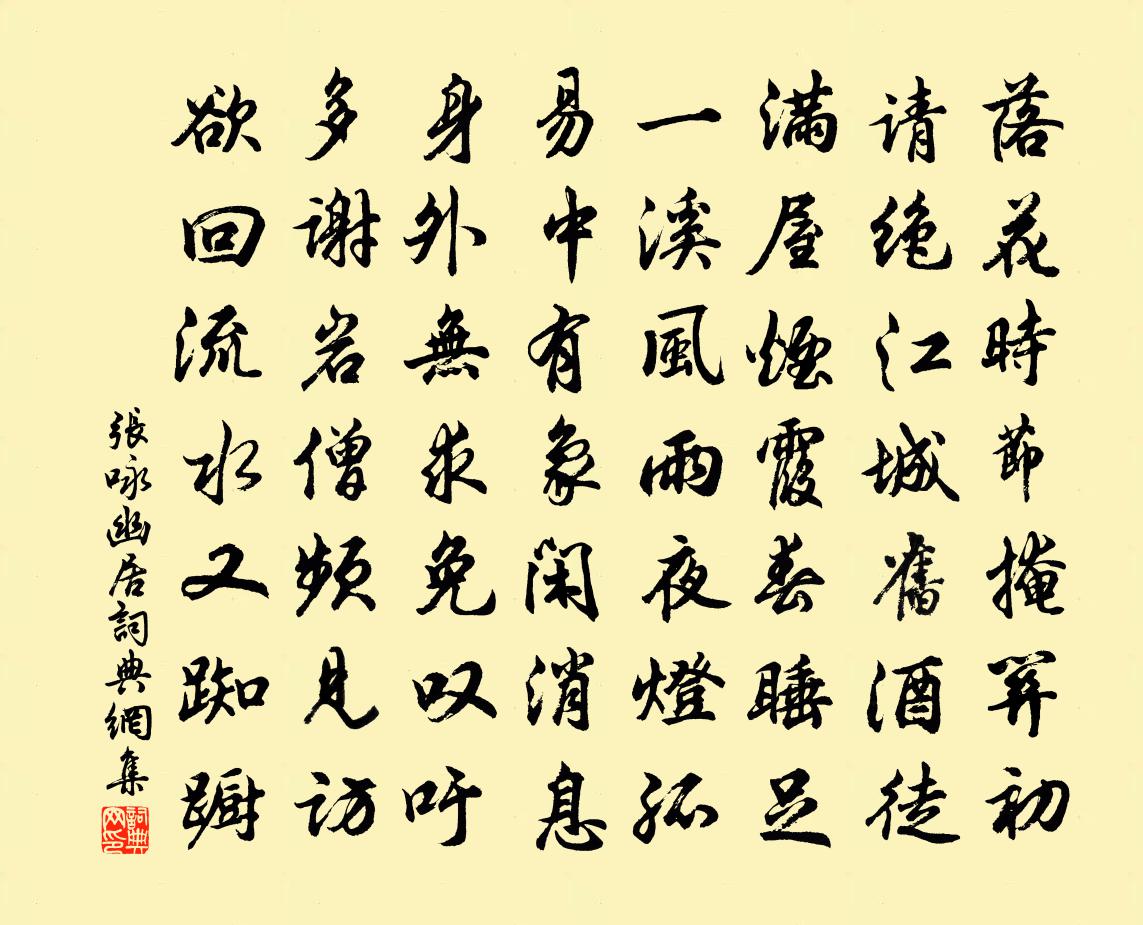 落花時節掩關初
請絕江城舊酒徒
滿屋煙霞春睡足
一溪風雨夜燈孤
易中有象閑消息
身外無求免叹吁
多謝岩僧頻見訪
欲回流水又踟躕
張咏幽居詞典網集
詞典網印